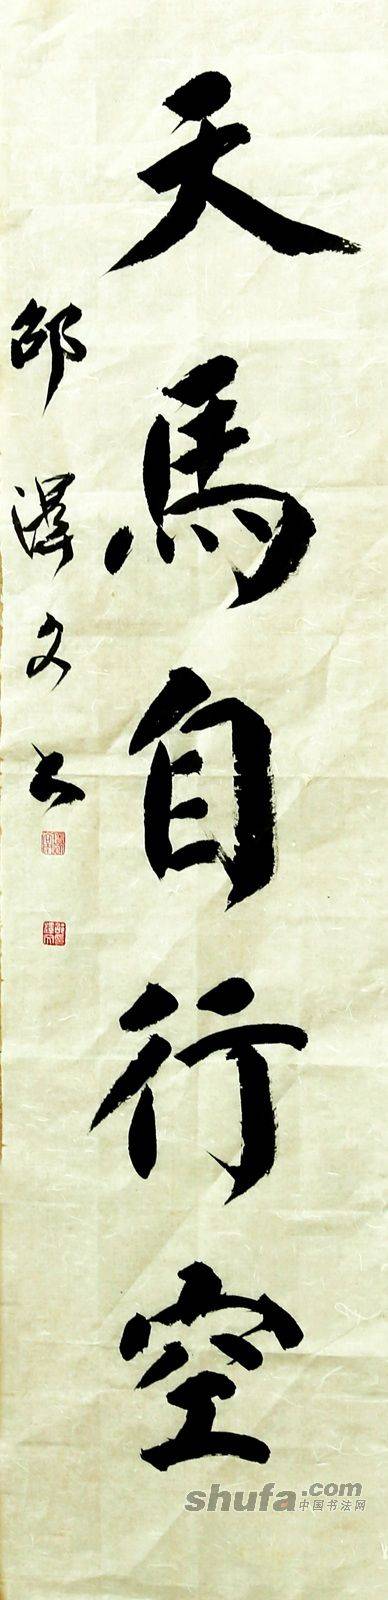 天馬自行空
邵澤文书
shufa.com
中国书法网